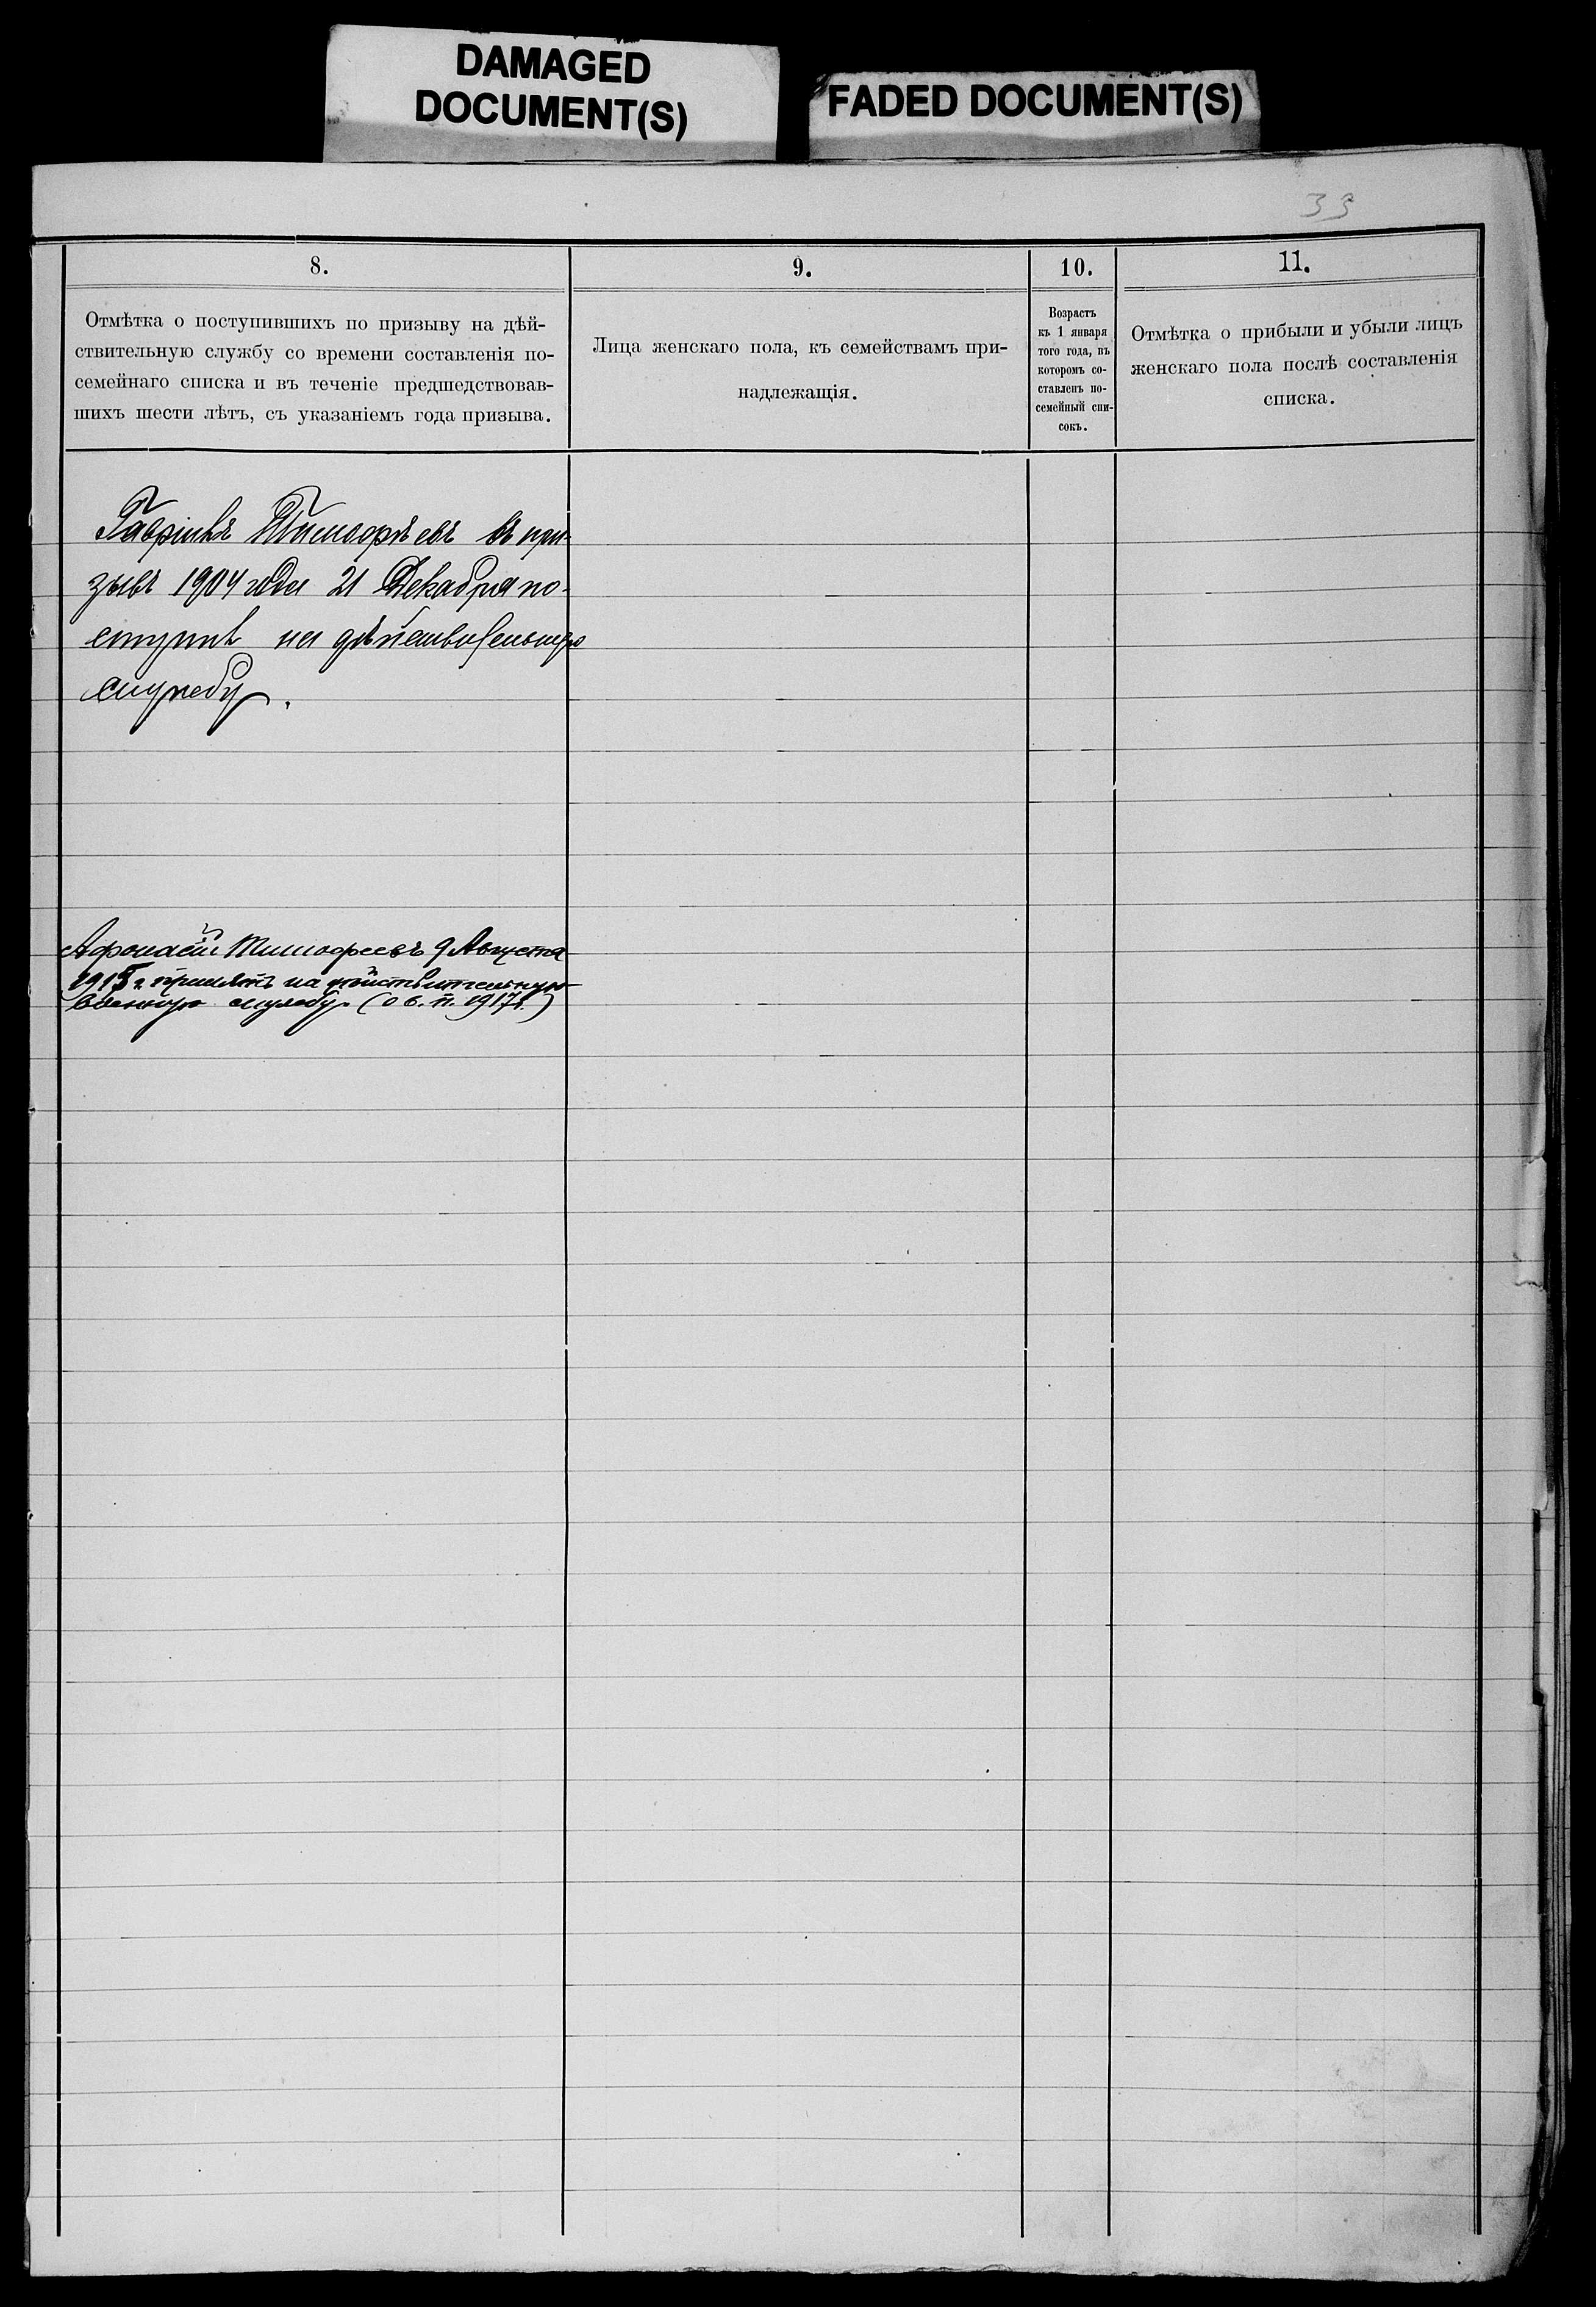 DAMAGED
DOCUMENT(S)
FADED DOCUMENT(S)
33
8.
Отмѣтка о поступившихъ по призыву на дѣй-
ствительную службу со времени составленія по-
семейнаго списка и въ теченіе предшедствовав-
шихъ шести лѣтъ, съ указаніемъ года призыва.
9.
Лица женскаго пола, къ семействамъ при-
надлежащія.
10.
Возрастъ
къ 1 января
того года, въ
которомъ со-
ставленъ по-
семейный спи-
сокъ.
11.
Отмѣтка о прибыли и убыли лицъ
женскаго пола послѣ составленія
списка.
Гавріилъ Тимофѣевъ въ при-
зывъ 1904 года 21 Декабря по-
ступилъ на дѣйствительную
службу.
Афонасій Тимофеевъ 9 Августа
1915 г. принятъ на дѣйствительную
военную службу (о б. п. 1917 г.)